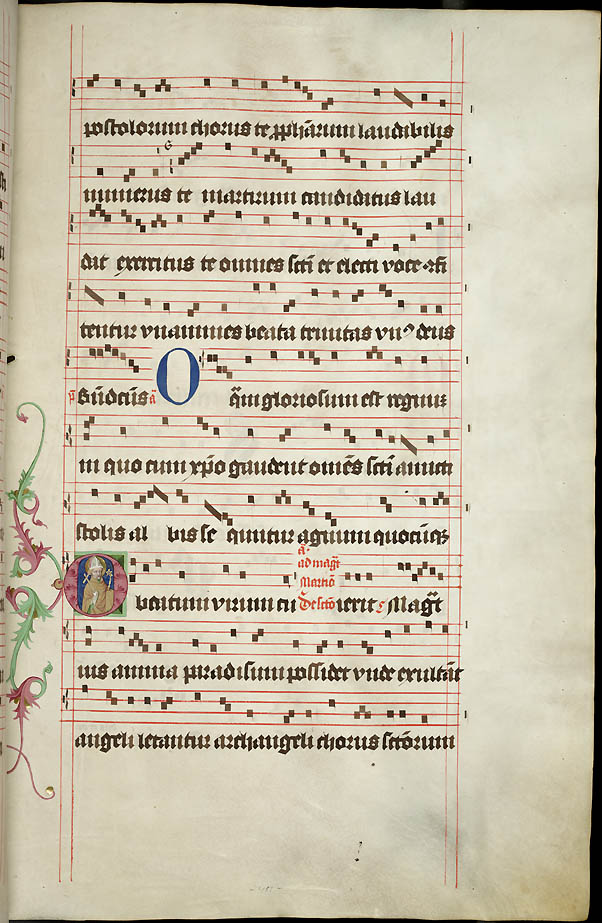 postolorum chorus te ꝓph̄arum laudibilis
numerus te martirum candidatus lau
dat exercitus te omnes sc̄ti et electi voce ↄfi
tentur vnanimes beata trinitas vnꝰ deus
p̄s B̄ndc̄us ā O q̄m gloriosum est regnum
in quo cum xp̄o gaudent om̄es sc̄ti amicti
stolis al bis se quntur agnum quocūqꝫ
ā
ad magt̄
Martiō
O beatum virum cu De sctō ierit Magt̄
ius anima paradisum possidet vnde exultāt
angeli letantur archangeli chorus sctōrum